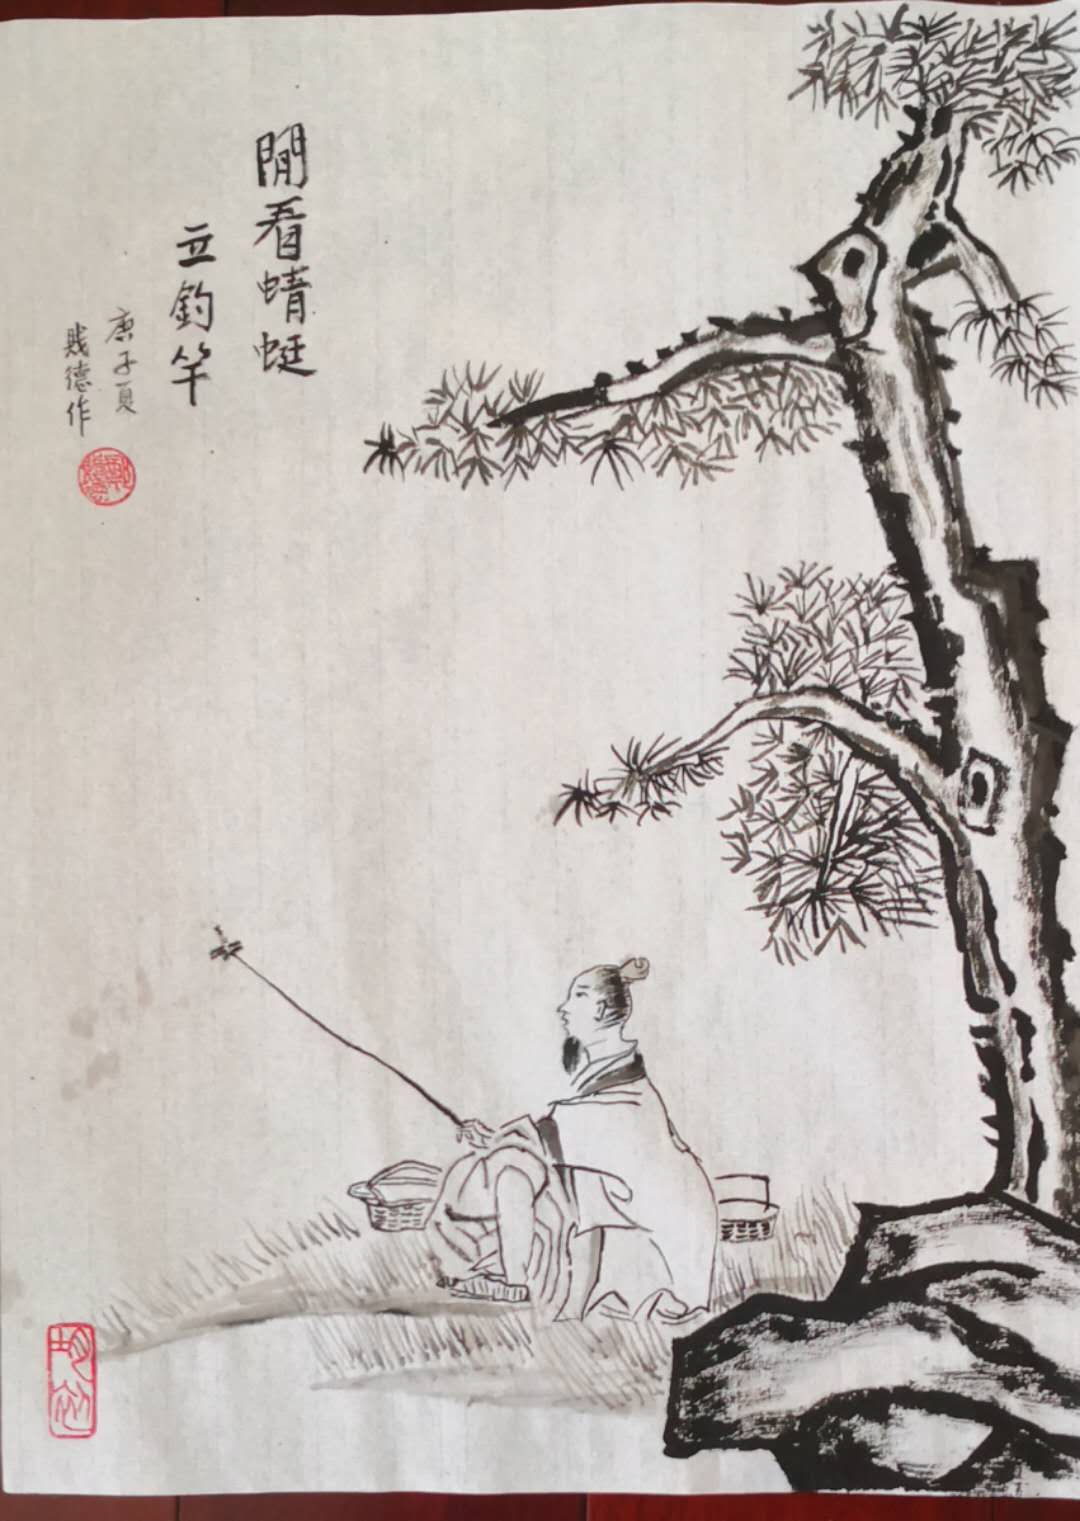 閒看蜻蜓
立釣竿
庚子夏
德作